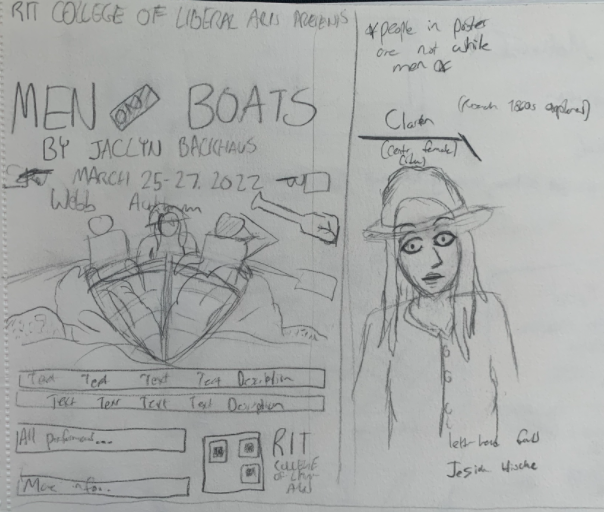 RIT COLLEGE OF LIBERAL ARTS PRESENTS
MEN ON BOATS
BY JACLYN BACKHAUS
MARCH 25-27. 2022
Webb
Text Text Text Text Description
Text Text Text Text Description
All performances...
More info...
RIT
COLLEGE
OF LIBERAL
ARTS
* people in poster
are not white
men *
(1800s explorers)
(center female)
Jessica Hische